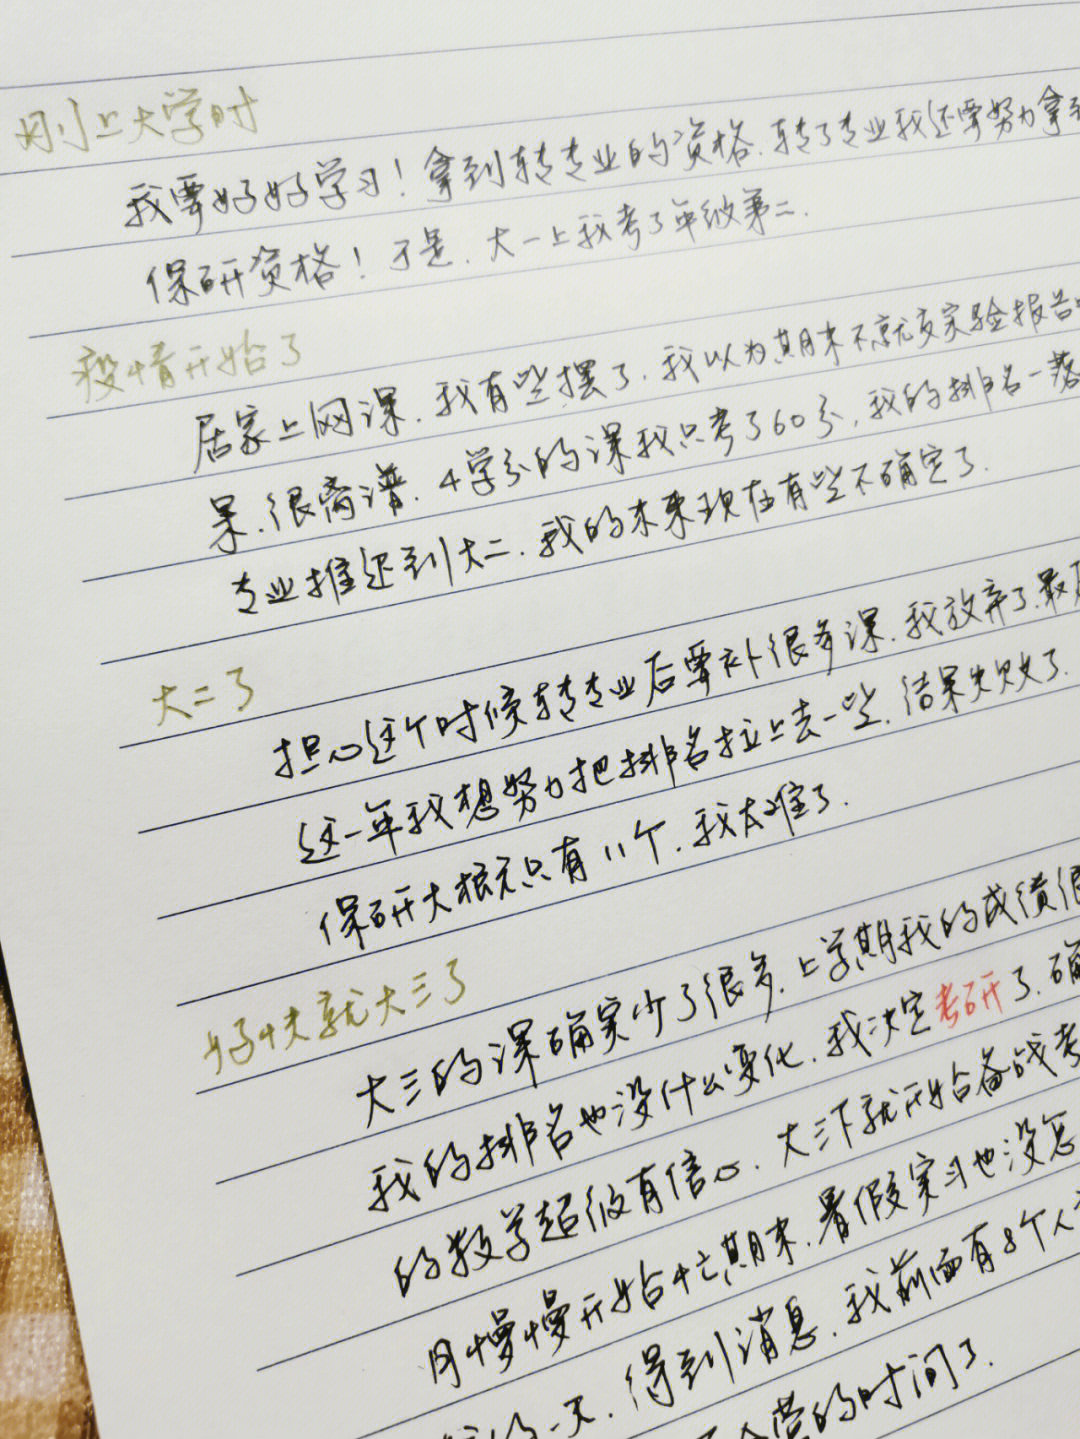 刚上大学时
我要好好学习！拿到转专业的资格.转了专业我还要努力拿到
保研资格！于是.大一上我考了年级第二.
疫情开始了
居家上网课.我有些摆了.我以为期末不就交实验报告
果.很离谱.4学分的课我只考了60分,我的排名一落
专业推迟到大二.我的未来现在有些不确定了.
大二了
担心这个时候转专业后要补很多课.我放弃了.最
这一年我想努力把排名拉上去一些.结果失败了.
保研大概只有11个.我太难了.
好快就大三了
大三的课确实少了很多.上学期我的成绩很
我的排名也没什么变化.我决定考研了.确
的数学超级有信心.大三下就开始备战考
月慢慢开始忙期末.暑假实习也没怎
的一天.得到消息.我前面有8个人
营的时间了.